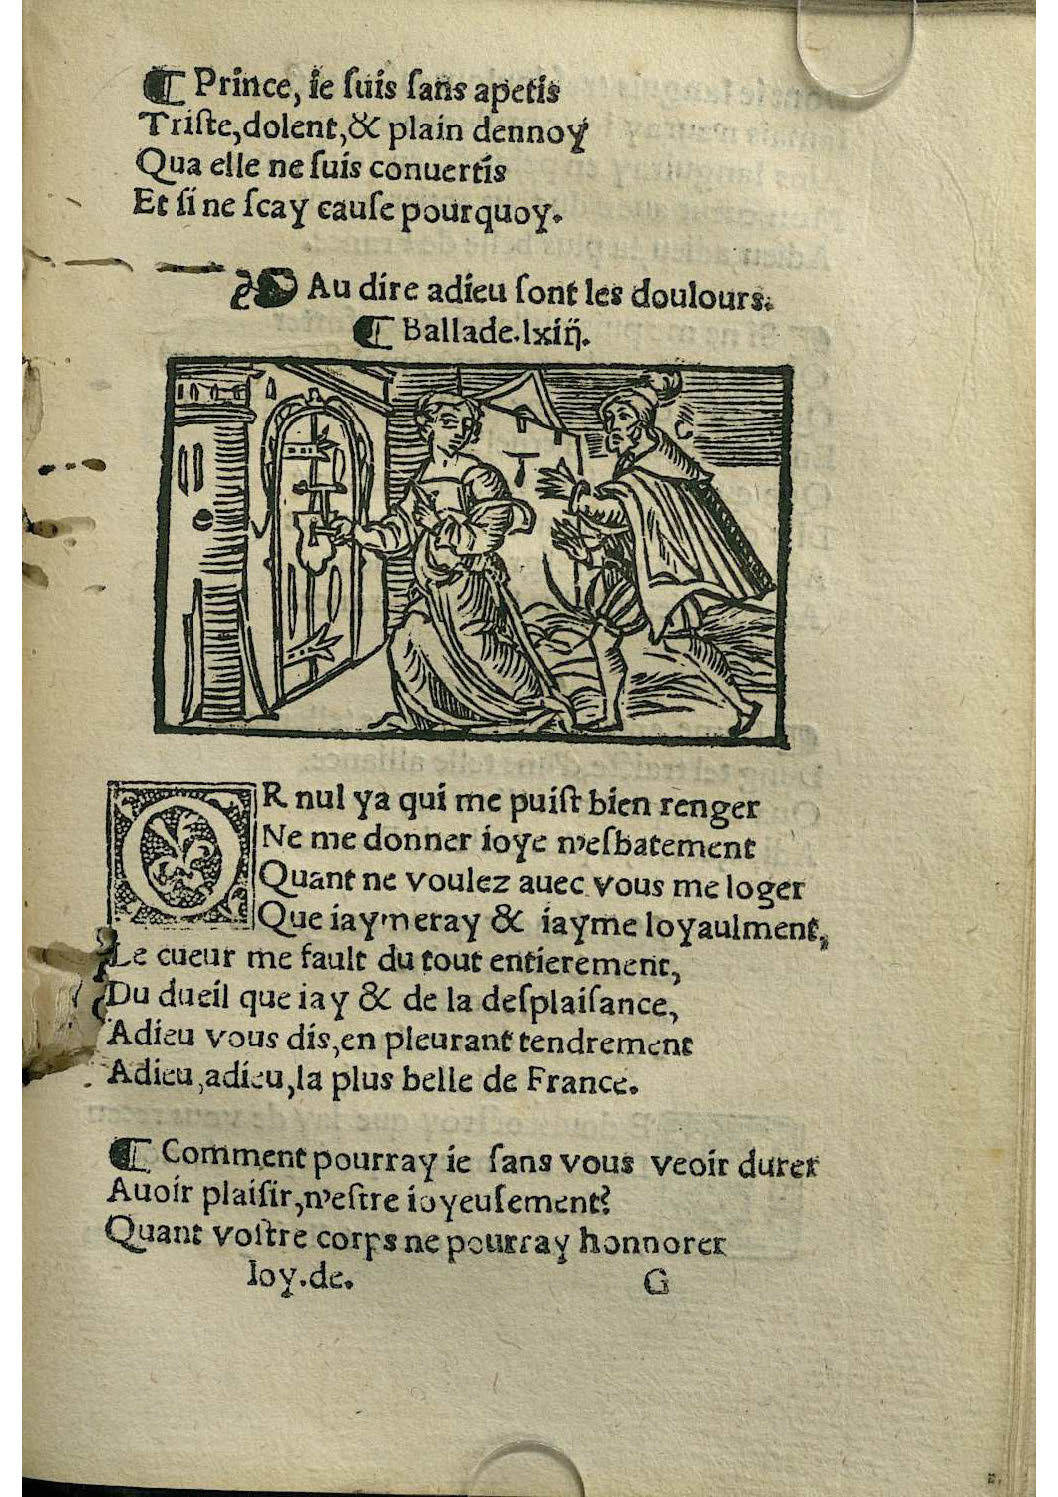 ¶ Prince, ie ſuis ſans apetis
Triſte, dolent, & plain dennoy
Qua elle ne ſuis conuertis
Et ſi ne ſcay cauſe pourquoy.
❧ Au dire adieu ſont les doulours.
¶ Ballade. lxiij.
OR nul ya qui me puiſt bien renger
Ne me donner ioye n'eſbatement
Quant ne voulez auec vous me loger
Que iaymeray & iayme loyaulment,
Le cueur me fault du tout entierement,
Du dueil que iay & de la deſplaiſance,
Adieu vous dis, en pleurant tendrement
Adieu, adieu, la plus belle de France.
¶ Comment pourray ie ſans vous veoir durer
Auoir plaiſir, n'eſtre ioyeuſement?
Quant voſtre corps ne pourray honnorer
Ioy. de.
G